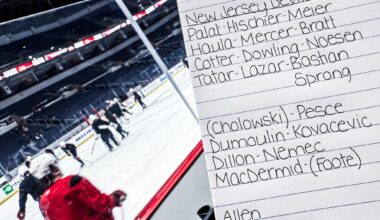 New Jersey Devils
Palat-Hischier-Meier
Haula-Mercer-Bratt
Cotter-Dowling-Noesen
Tatar-Lazar-Bastian
Sprong
(Cholowski)-Pesce
Dumoulin-Kovacevic
Dillon-Nemec
MacDermid-(Foote)
Allen